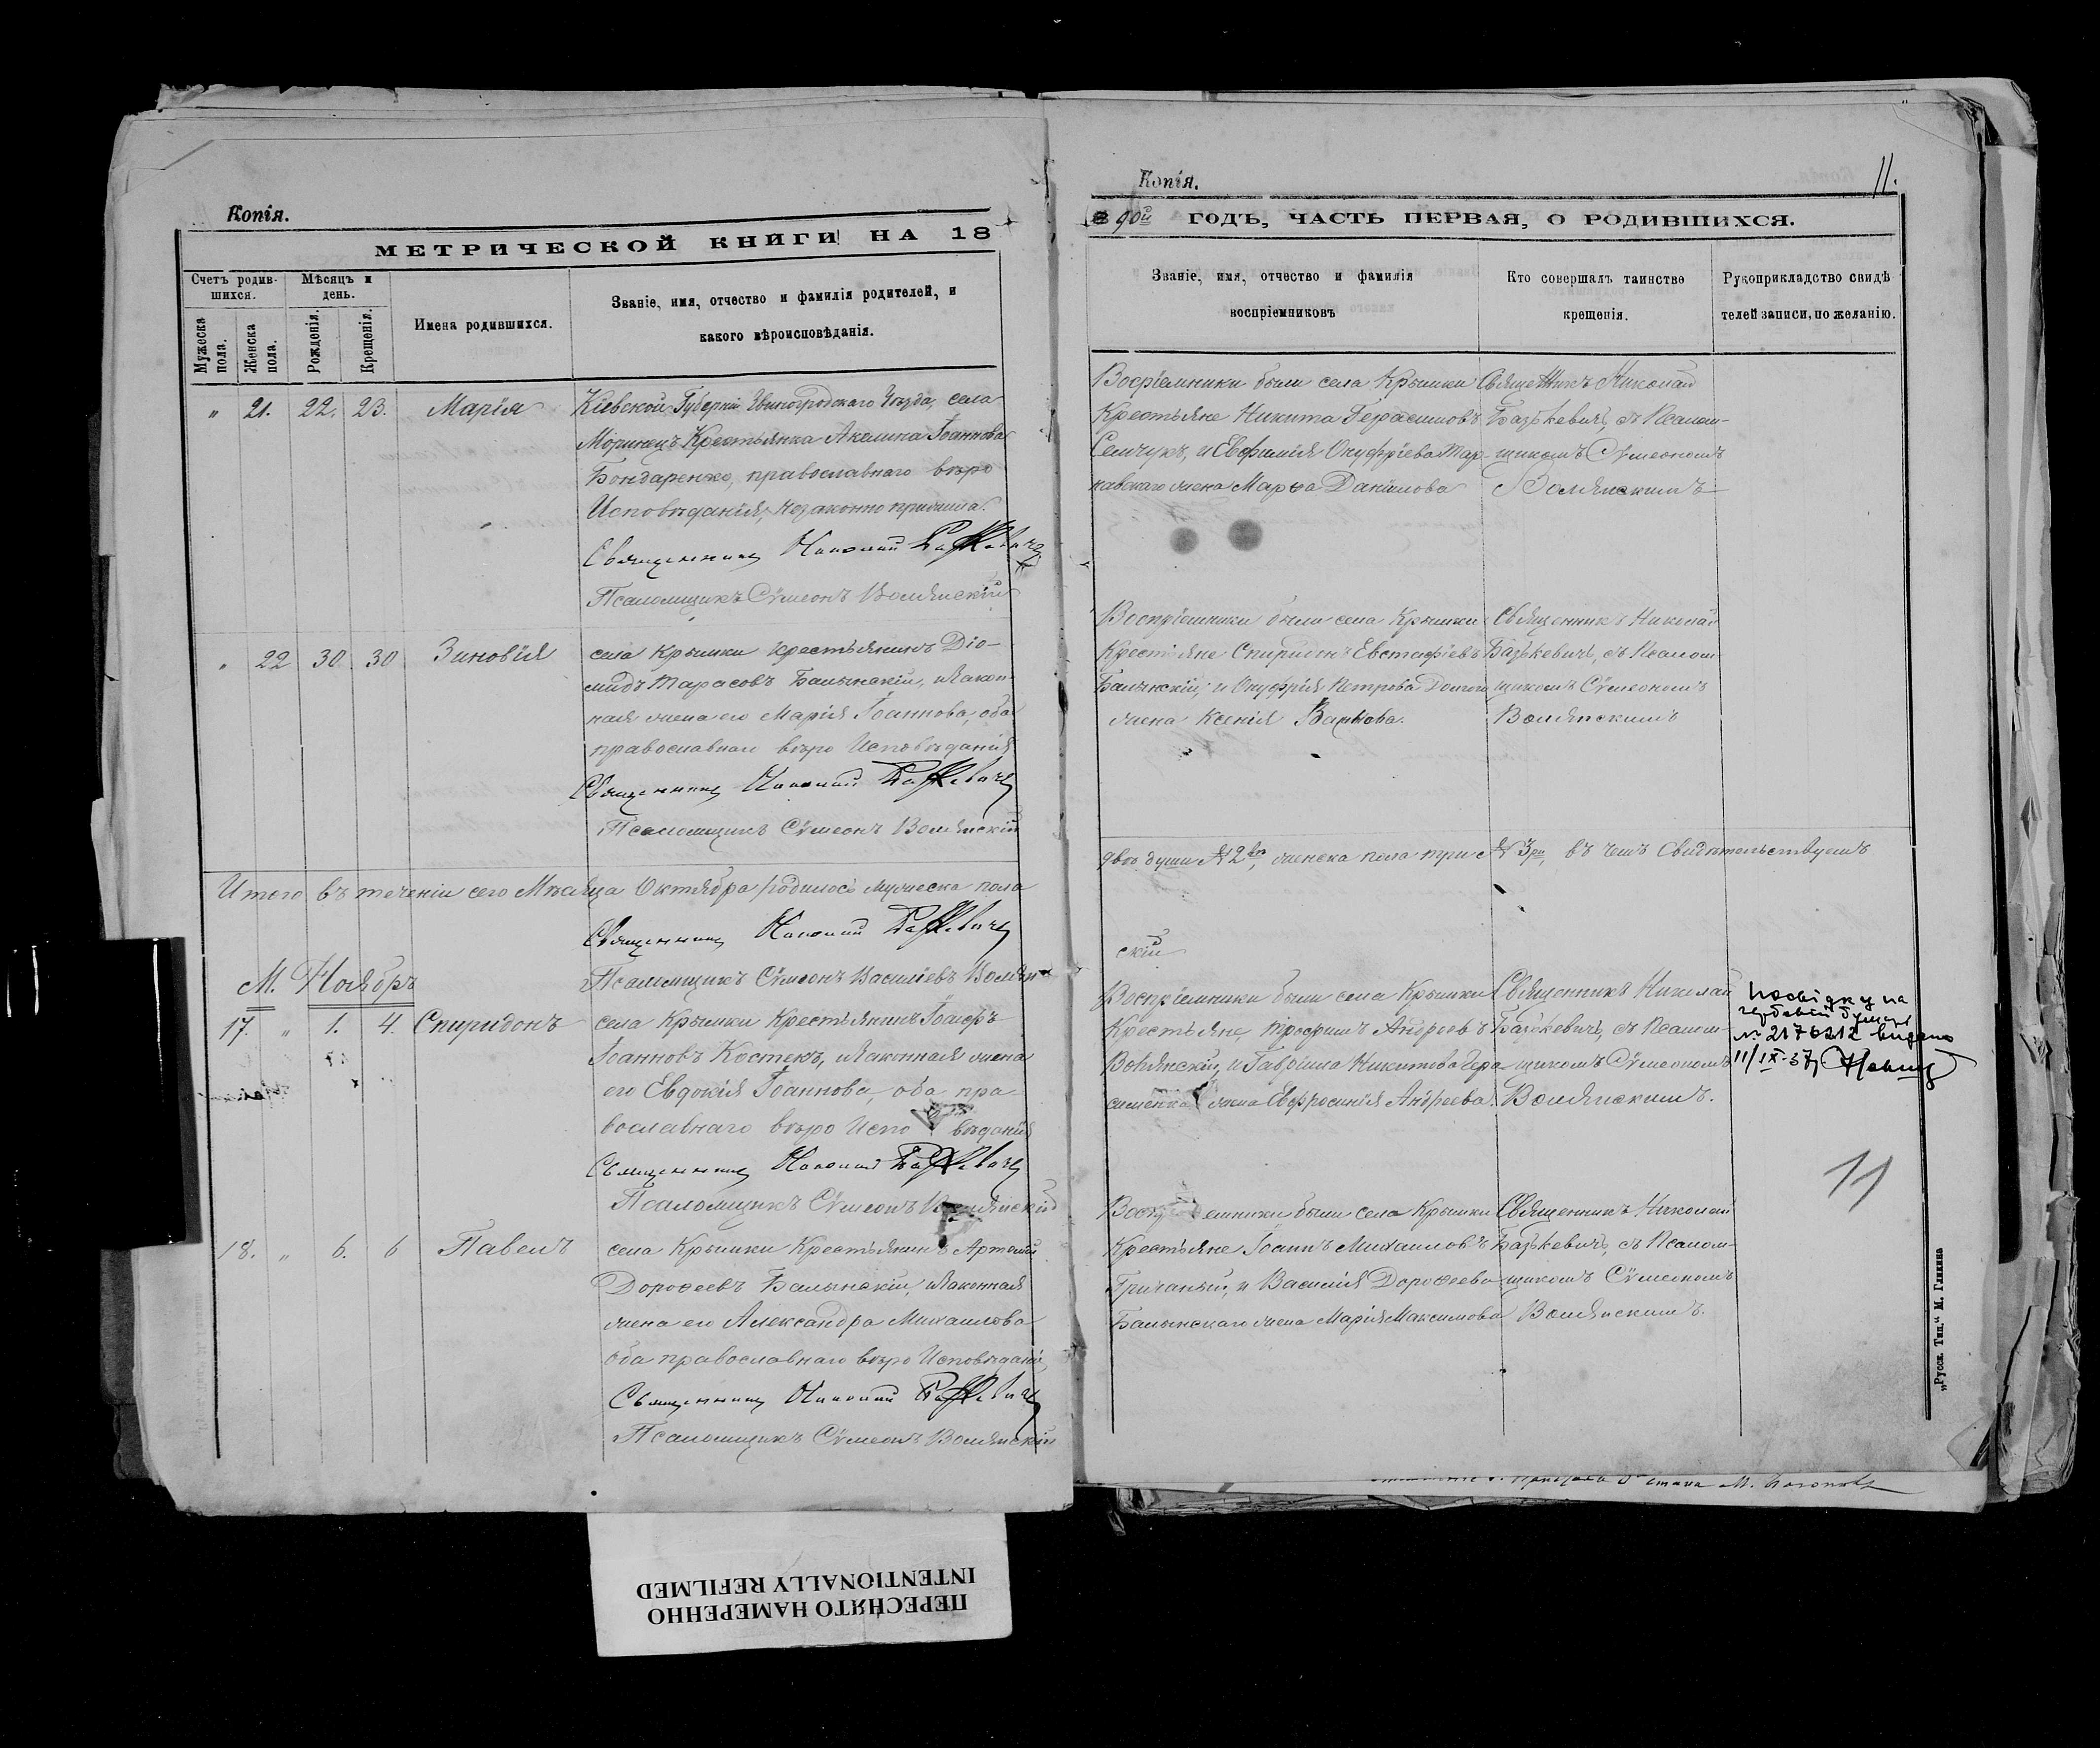 Копія.
МЕТРИЧЕСКОЙ КНИГИ НА 18
Счетъ родив-
шихся.
Мѣсяцъ и
день.
Мужеска
пола.
Женска
пола.
Рожденія.
Крещенія.
Имена родившихся.
Званіе, имя, отчество и фамилія родителей, и
какого вѣроисповѣданія.
„ 21. 22. 23. Марія
Кіевской Губерніи Звиногродскаго Уѣзда, села
Моринецъ Крестьянка Акелина Іоаннова
Бондаренко, православнаго вѣро
Исповѣданія, незаконно прижила.
Священникъ Николай
Псаломщикъ Сѵмеонъ Волянскій
„ 22 30 30 Зиновія
села Крымки Крестьянинъ Діо-
мидъ Тарасовъ Балынскій, и закон-
ная жена его Марія Іоаннова, оба
православнаго вѣро Исповѣданія
Священникъ Николай
Псаломщикъ Сѵмеонъ Волянскій
Итого въ теченіи сего Мѣсяца Октября родилось мужеска пола
Священникъ Николай
Псаломщикъ Сѵмеонъ Васильевъ Волян-
М. Ноябрь
17. „ 1. 4. Спиридонъ
села Крымки Крестьянинъ Іосифъ
Іоанновъ Костекъ, и законная жена
его Евдокія Іоаннова, оба пра-
вославнаго вѣро Испо вѣданія
Священникъ Николай
Псаломщикъ Сѵмеонъ Волянскій
18. „ 6. 6 Павелъ
села Крымки Крестьянинъ Артемій
Дороѳеевъ Балынскій, и законная
жена его Александра Михаилова
оба православнаго вѣро Исповѣданія,
Священникъ Николай
Псаломщикъ Сѵмеонъ Волянскій
Копія.
11.
90й ГОДЪ, ЧАСТЬ ПЕРВАЯ, О РОДИВШИХСЯ.
Званіе, имя, отчество и фамилія
воспріемниковъ
Кто совершалъ таинство
крещенія.
Рукоприкладство свидѣ
телей записи, по желанію.
Воспріемники были села Крымки
Крестьяне Никита Герасимовъ
Семчукъ, и Евфимія Онуфріева Тар-
навскаго жена Марѳа Даніилова
Священникъ Николай
Базькевичъ, съ Псалом-
щикомъ Сѵмеономъ
Волянскимъ
Воспріемники были села Крымки
Крестьяне Спиридонъ Евстафіевъ
Балынскій, и Онуфрія Петрова
жена Ксенія
Священникъ Николай
Базькевичъ, съ Псалом
щикомъ Сѵмеономъ
Волянскимъ
двое души № 2, женска пола три № 3, въ чемъ Свидѣтельствуемъ
скій
Воспріемники были села Крымки
Крестьяне, Трофимъ Андреевъ
и Гавріила Никитова Гера-
сименка жена Евфросинія Андреева.
Священникъ Николай
Базькевичъ, съ Псалом-
щикомъ Сѵмеономъ
Волянскимъ.
посвідку на
гербовій бумазі
№ 2176212 видано
11/IX-37
11
Воспріемники были села Крымки
Крестьяне Іоаннъ Михаиловъ
и Василія Дороѳеева
Балынскаго жена Марія Максимова
Священникъ Николай
Базькевичъ, съ Псалом-
щикомъ Сѵмеономъ
Волянскимъ.
„Русск. Тип.“ М. Гликина
ПЕРЕСНЯТО НАМЕРЕННО
INTENTIONALLY REFILMED